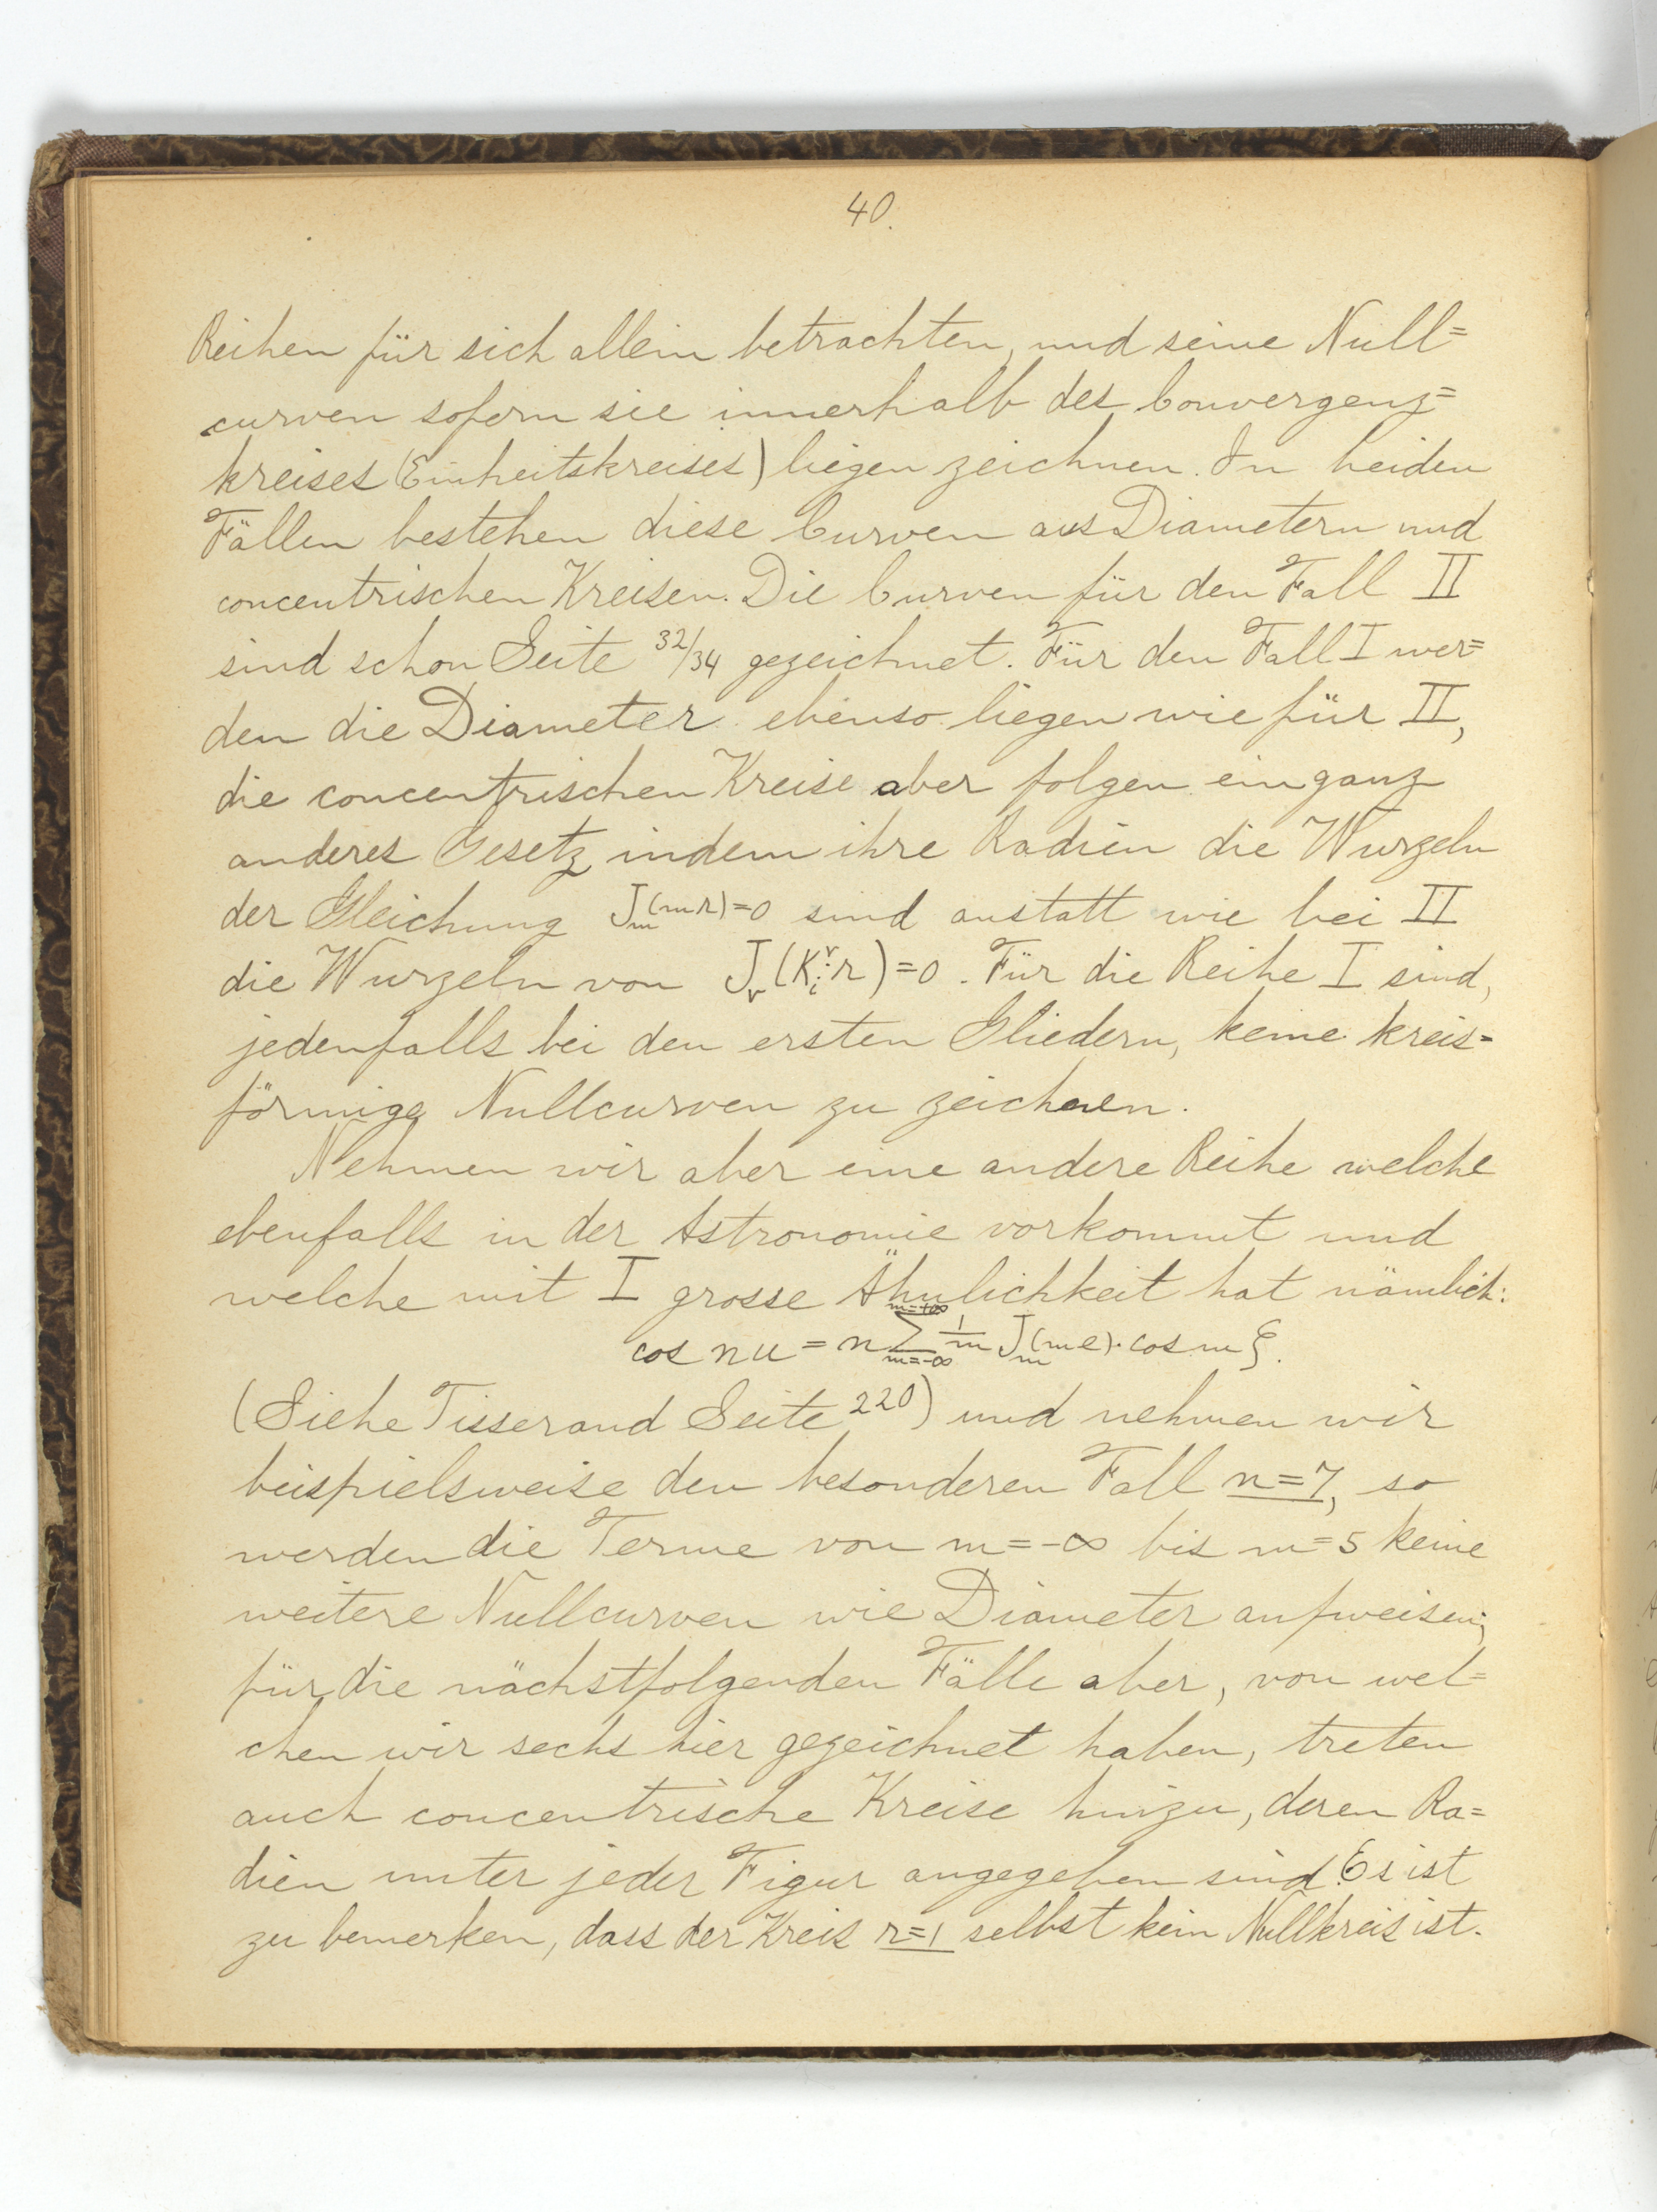 40.
Reihen für sich allein betrachten, und seine Null=
curven sofern sie innerhalb des Convergenz=
kreises (Einheitskreises) liegen zeichnen. In beiden
Fällen bestehen diese Curven aus Diametern und
concentrischen Kreisen. Die Curven für den Fall II
sind schon Seite 32/34 gezeichnet. Für den Fall I wer=
den die Diameter ebenso liegen wie für II,
die concentrischen Kreise aber folgen ein ganz
anderes Gesetz, indem ihre Radien die Wurzeln
der Gleichung J_m(mr)=0 sind anstatt wie bei II
die Wurzeln von J_ν(K_i^ν·r)=0. Für die Reihe I sind,
jedenfalls bei den ersten Gliedern, keine kreis=
förmige Nullcurven zu zeichnen.
Nehmen wir aber eine andere Reihe welche
ebenfalls in der Astronomie vorkommt und
welche mit I grosse Ähnlichkeit hat nämlich:
cos nu = n ∑_{m=-∞}^{m=+∞} 1/m J_m(me)·cos mξ.
(Siehe Tisserand Seite 220) und nehmen wir
beispielsweise den besonderen Fall n=7, so
werden die Terme von m=-∞ bis m=5 keine
weitere Nullcurven wie Diameter aufweisen;
für die nächstfolgenden Fälle aber, von wel=
chen wir sechs hier gezeichnet haben, treten
auch concentrische Kreise hinzu, deren Ra=
dien unter jeder Figur angegeben sind. Es ist
zu bemerken, dass der Kreis r=1 selbst kein Nullkreis ist.